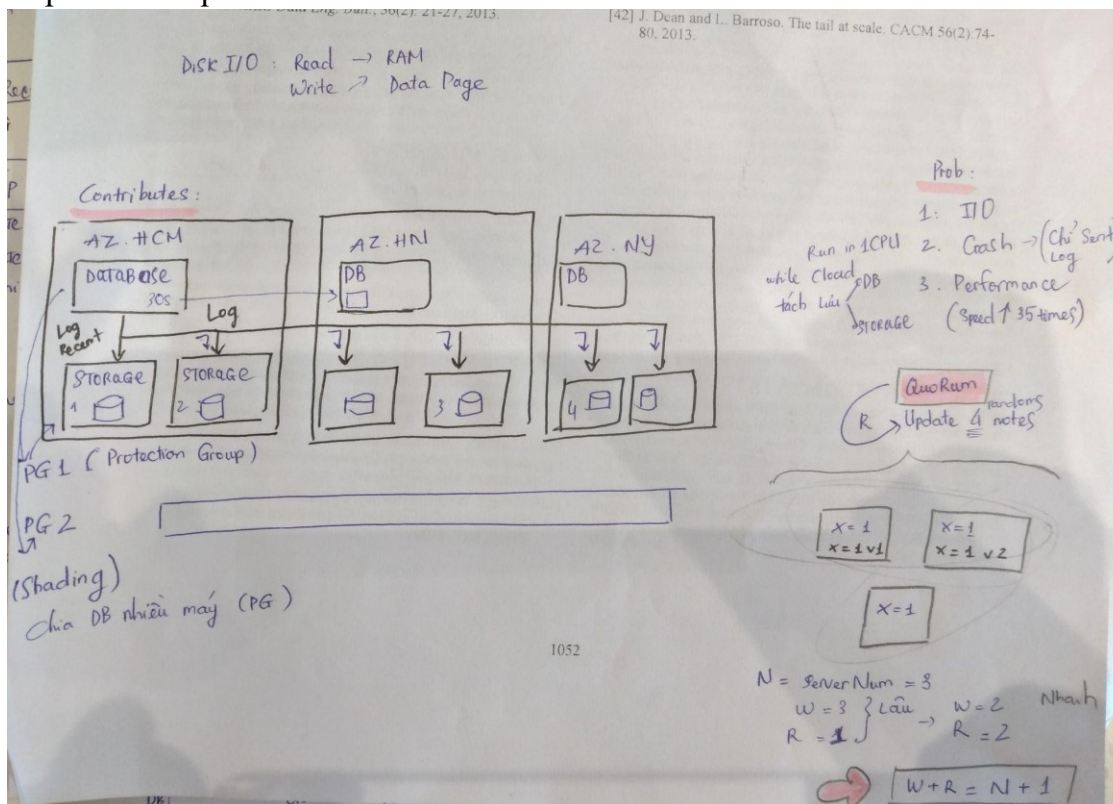 Data Eng. Bull., 36(2): 21-27, 2013.
[42] J. Dean and L. Barroso. The tail at scale. CACM 56(2):74-
80, 2013.
Disk I/O : Read → RAM
Write ↗ Data Page
Contributes :
AZ. HCM
DATABASE
30s
Log
Recent
Log
STORAGE
1
STORAGE
2
AZ. HN
DB
3
AZ. NY
DB
4
PG 1 ( Protection Group )
PG 2
(Shading)
chia DB nhiều máy (PG )
1052
Prob :
1: I/O
2. Crash → (Chỉ Sent
Log
Run in 1CPU
while Cloud
tách lưu
DB
STORAGE
3. Performance
(Speed ↑ 35 times)
QuoRum
R
Update 4 notes
randoms
X = 1
X = 1 v1
X = 1
X = 1 v2
X = 1
N = Server Num = 3
W = 3 } Lâu → W = 2
R = 1 R = 2
Nhanh
W + R = N + 1
DB